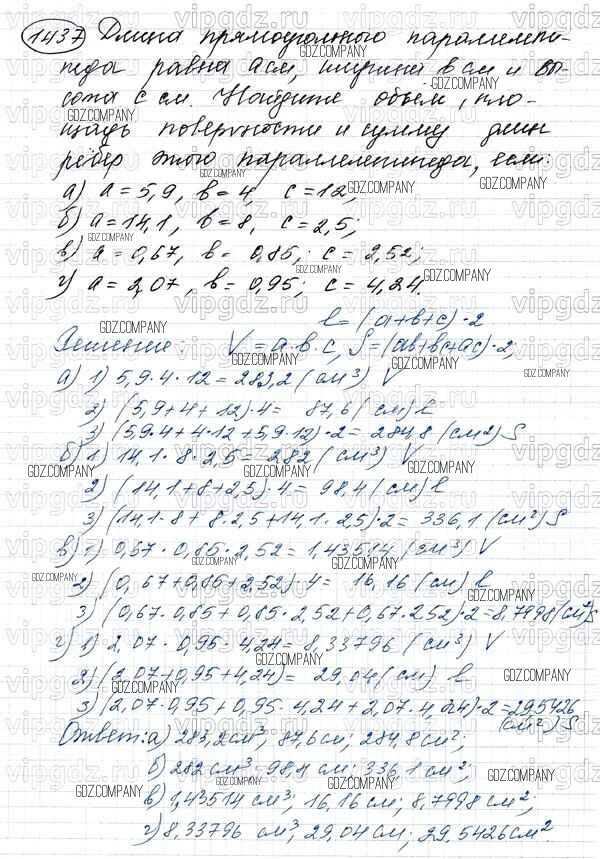 1437 Длина прямоугольного параллелепи-
педа равна а см, ширина в см и вы-
сота с см. Найдите объём, пло-
щадь поверхности и сумму длин
рёбер этого параллелепипеда, если:
а) а = 5,9, в = 4, с = 12;
б) а = 14,1, в = 8, с = 2,5;
в) а = 0,67, в = 0,85; с = 2,52;
г) а = 2,07, в = 0,95; с = 4,24.
l = (а+в+с)·2
Решение: V = а·в·с, S = (ав+вс+ас)·2
а) 1) 5,9·4·12 = 283,2 (см³) V
2) (5,9+4+12)·4 = 87,6 (см) l
3) (5,9·4+4·12+5,9·12)·2 = 284,8 (см2) S
б) 1) 14,1·8·2,5 = 282 (см³) V
2) (14,1+8+2,5)·4 = 98,4 (см) l
3) (14,1·8+8·2,5+14,1·2,5)·2 = 336,1 (см²) S
в) 1) 0,67·0,85·2,52 = 1,43514 (см³) V
2) (0,67+0,85+2,52)·4 = 16,16 (см) l
3) (0,67·0,85+0,85·2,52+0,67·2,52)·2 = 8,7998 (см²) S
г) 1) 2,07·0,95·4,24 = 8,33796 (см³) V
2) (2,07+0,95+4,24) = 29,04 (см) l
3) (2,07·0,95+0,95·4,24+2,07·4,24)·2 = 29,5426
(см²) S
Ответ: а) 283,2 см³; 87,6 см; 284,8 см²;
б) 282 см³; 98,4 см; 336,1 см²;
в) 1,43514 см³; 16,16 см; 8,7998 см²;
г) 8,33796 см³; 29,04 см; 29,5426 см².